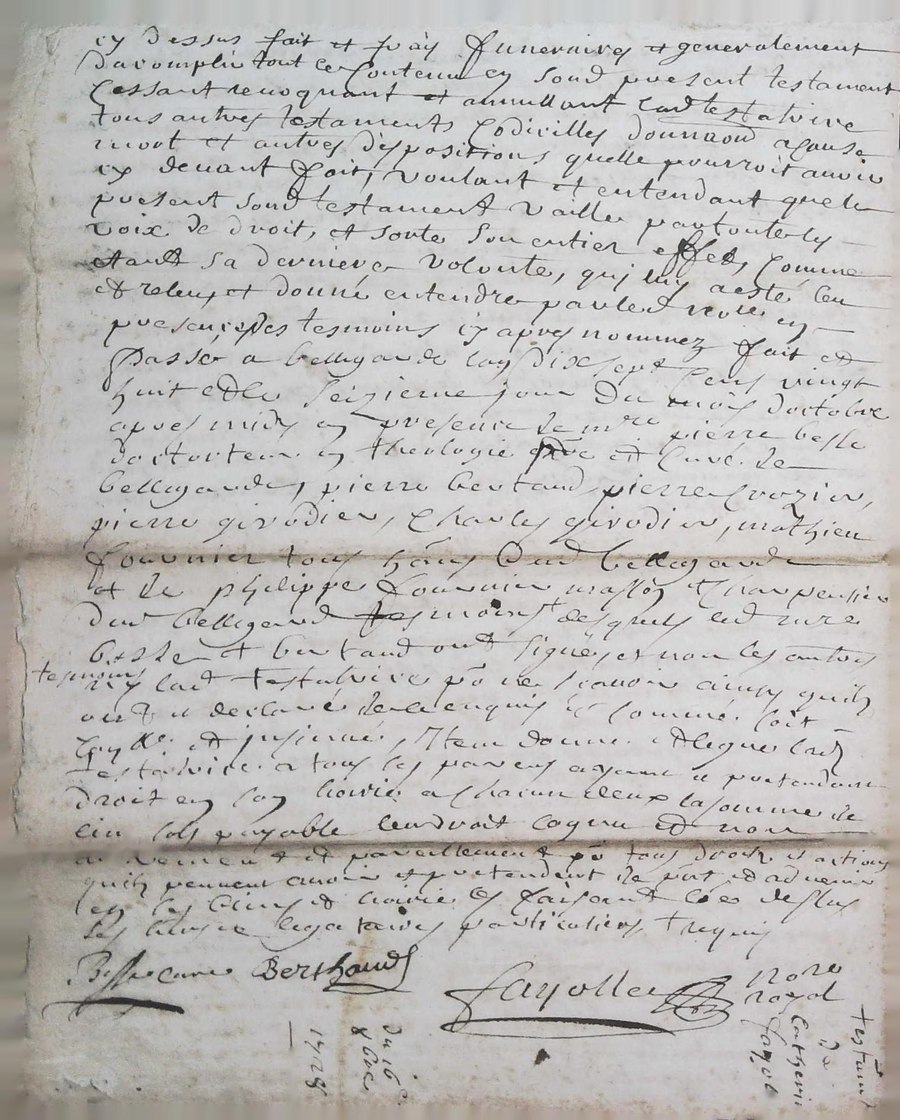 cy dessus fait et fraix funeraires et generalement
dacomplir tout le contenu en sond present testament
Cessant revoquant et annullant lad testatrice
tous autres testaments Codicilles donnaõn a cause
mort et autres dispositions quelle pourroit avoir
cy devant fait, voulant et entendant que le
present sond testament vaille par toutes les
voix de droit, et sorte son entier effet, Comme
etant sa derniere volonté, qui luy a esté leu
et releu et donné entendre par led nore en
presence des tesmoins cy apres nommez fait et
Passé a bellegarde lan Dix sept Cens vingt
huit et le seizieme jour du mois doctobre
apres midy en presence de mre pierre besse
docteur en theologie et Curé de
bellegarde, pierre bertaud, pierre Crozier,
pierre girodier, Charles girodier, mathieu
fournier tous dud bellegarde
et de philippe fournier masson et charpentier
dud bellegard tesmoins desquels led mre
besse et bertaud ont signé, et non les autres
tesmoins
ny lad testatrice po ne scavoir ainsy quils
ont declaré de ce enquis et sommé soit
et insinué, Item donne et legue lad
testatrice a tous les parens ayant et pretendant
droit en son hoirie a chacun deux la somme de
cin sols payable leur droit cognu et non
autrement et pareillement po tous droits et actions
quils peuvent avoir et pretendent de part et advenir
en ses biens et hoirie les faisant des dessus
ses legataires particuliers requis
Besse curé Berthaud
Fayolle nore
royal
du 16
8bre
1728
testamt
de
Catherine
fayol